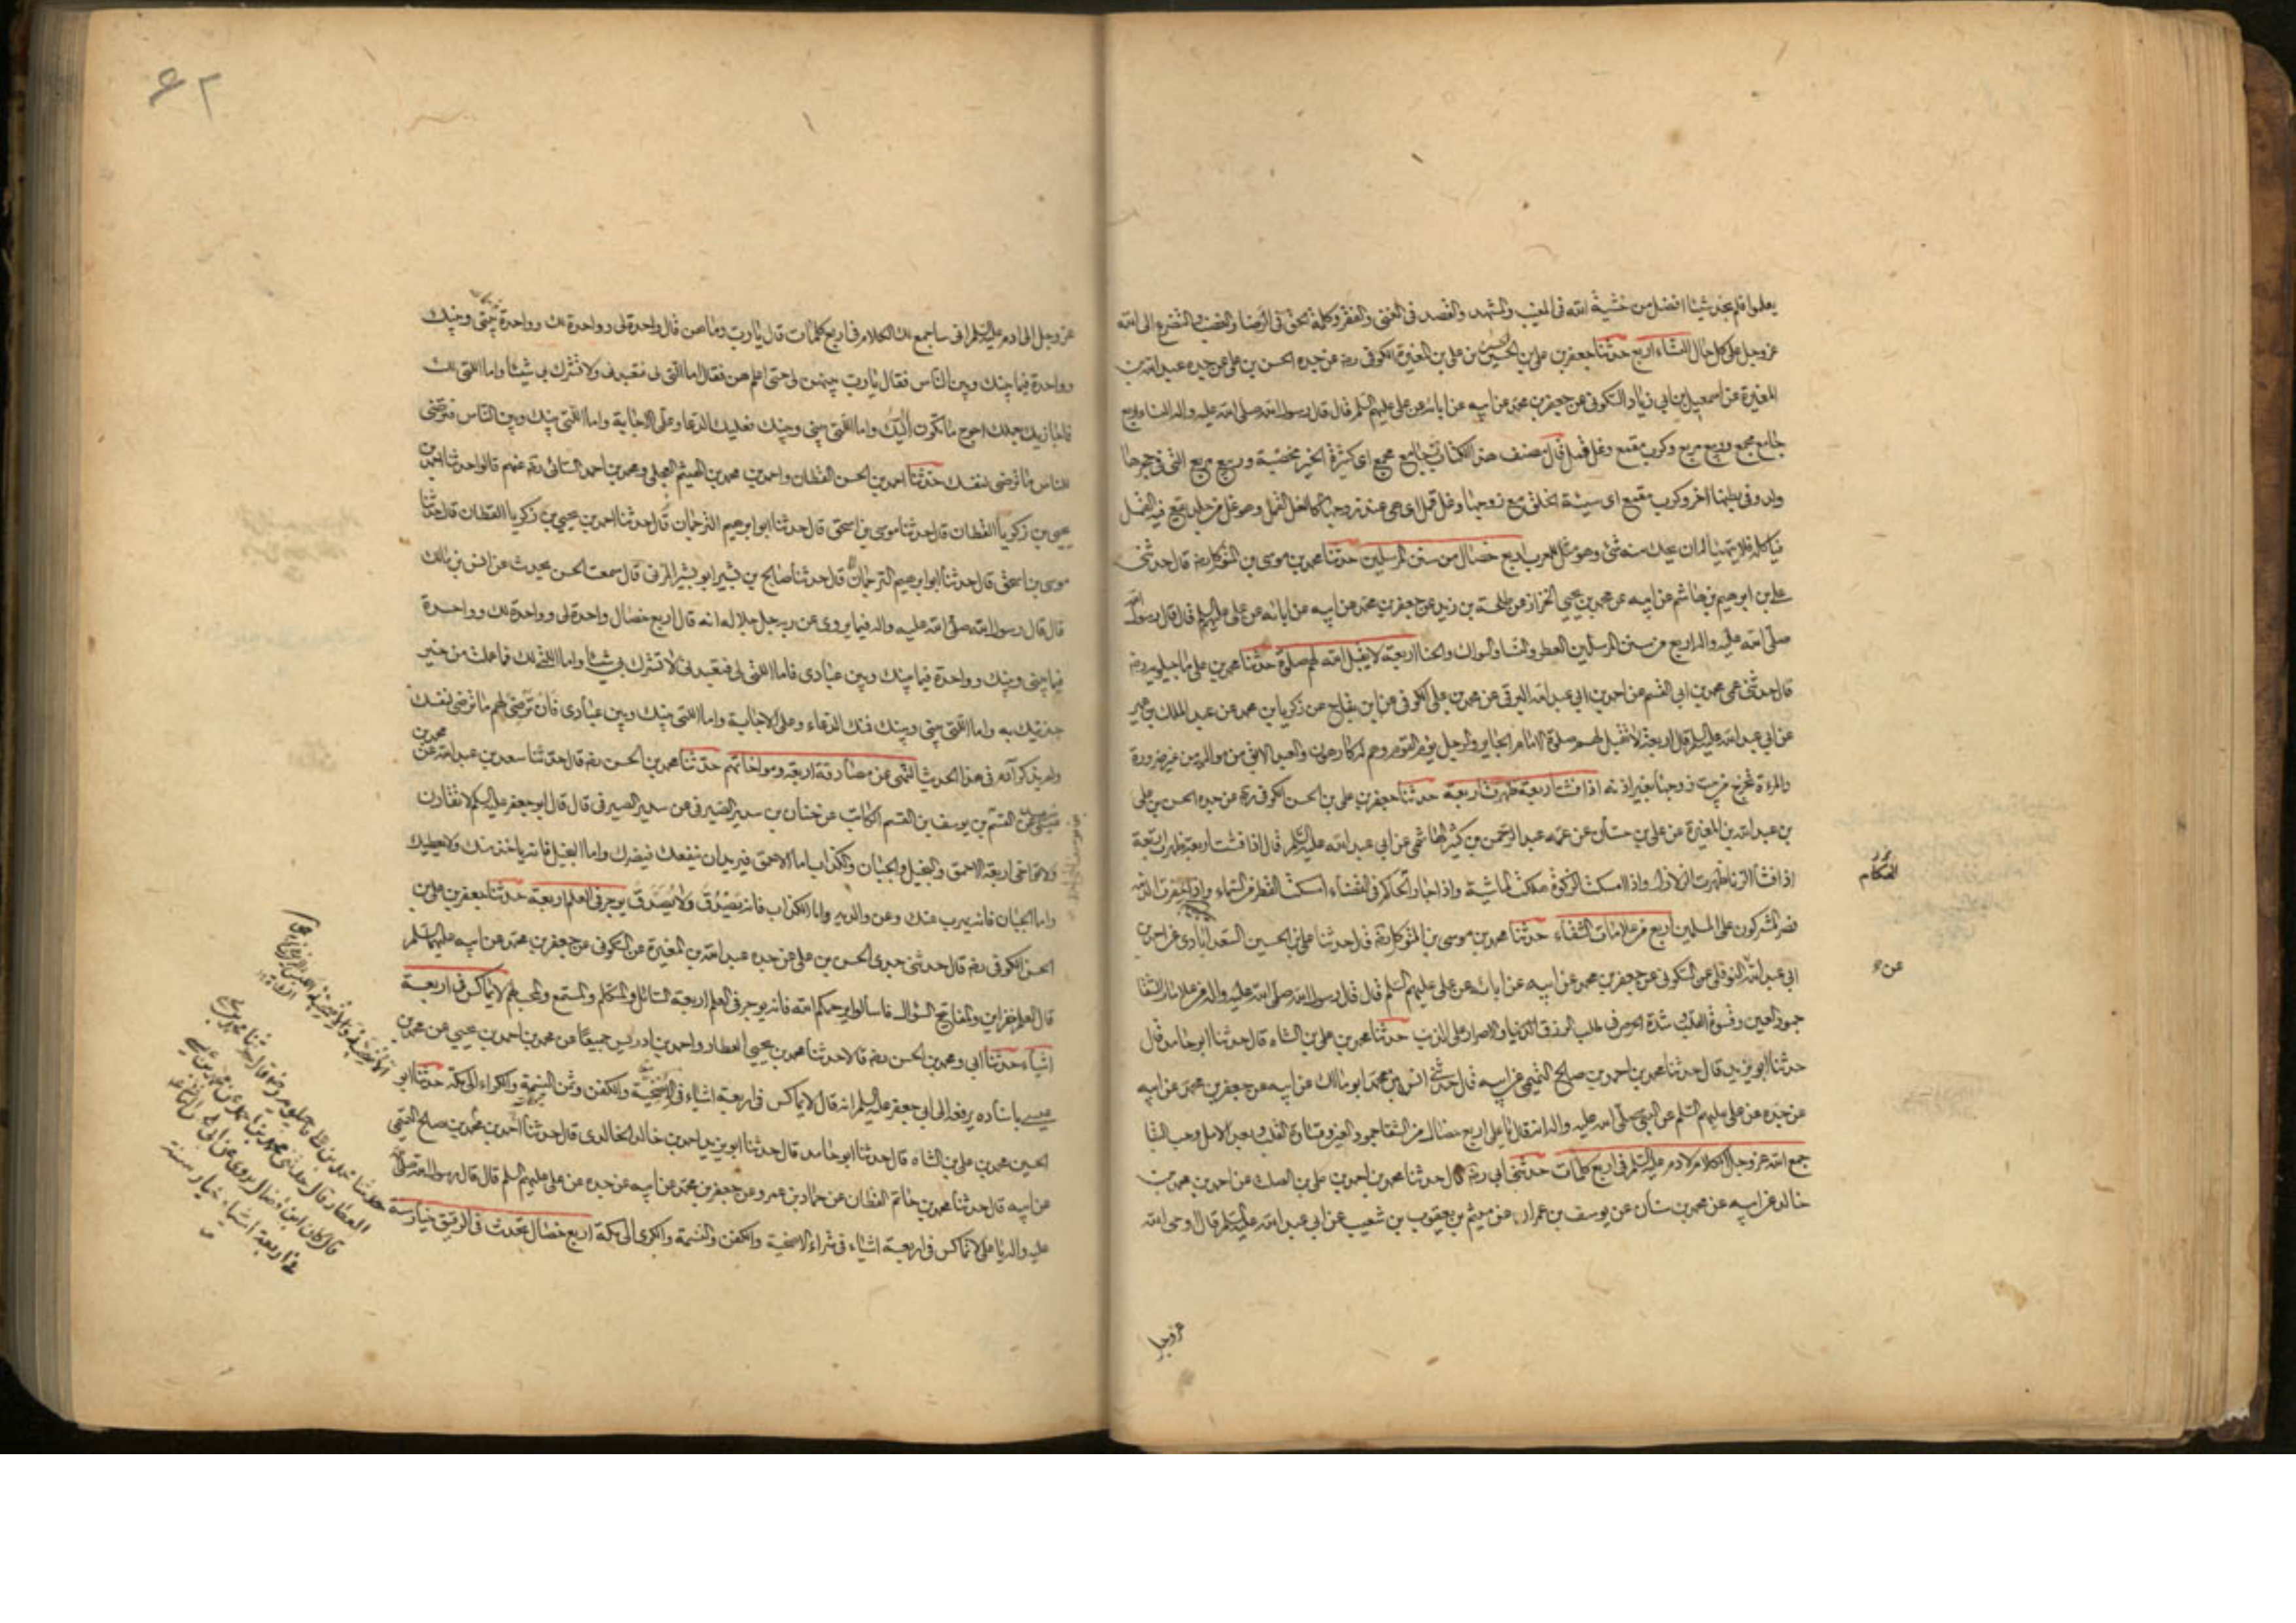 يعلموا فلم نجد شيئا افضل من خشية الله فى المغيب والمشهد والقصد فى الغنى والفقر وكلمة الحق فى الرضا والغضب والتضرع الى الله
عز وجل على كل حال النساء اربع حدثنا جعفر بن على بن الحسين بن على بن المغيرة الكوفى رضه عن جده الحسن بن على عن جده عبد الله بن
المغيرة عن اسمعيل بن ابى زياد السكونى عن جعفر بن محمد عن ابيه عن ابائه عن على عليهم السلم قال قال رسول الله صلى الله عليه واله النساء اربع
جامع مجمع وربيع مربع وكرب مقمع وغل قمل قال مصنف هذا الكتاب جامع مجمع اى كثيرة الخير مخصبة وربيع مربع التى فى حجرها
ولد وفى بطنها اخر وكرب مقمع اى سيئة الخلق مع زوجها وغل قمل اى هى عند زوجها كالغل القمل وهو غل من جلد يقع فيه القمل
فياكله فلا يتهيا له ان يحك منه شئ وهو مثل للعرب اربع خصال من سنن المرسلين حدثنا محمد بن موسى بن المتوكل رضه قال حدثنى
على بن ابرهيم بن هاشم عن ابيه عن محمد بن يحيى الخزاز عن طلحة بن زيد عن جعفر بن محمد عن ابيه عن ابائه عن على عليهم السلم قال قال رسول الله
صلى الله عليه واله اربع من سنن المرسلين العطر والنساء والسواك والحنا اربعة لا يقبل الله لهم صلوة حدثنا محمد بن على ماجيلويه رضه
قال حدثنى عمى محمد بن ابى القسم عن احمد بن ابى عبد الله البرقى عن محمد بن على الكوفى عن ابن بقاح عن زكريا بن محمد عن عبد الملك بن عمير
عن ابى عبد الله عليه السلم قال اربعة لا تقبل لهم صلوة الامام الجاير والرجل يؤم القوم وهم له كارهون والعبد الابق من مواليه من غير ضرورة
والمرءة تخرج من بيت زوجها بغير اذنه اذا فشت اربعة ظهرت اربعة حدثنا جعفر بن على بن الحسن الكوفى رضه عن جده الحسن بن على
بن عبد الله بن المغيرة عن على بن حسان عن عمه عبد الرحمن بن كثير الهاشمى عن ابى عبد الله عليه السلم قال اذا فشت اربعة ظهرت اربعة
اذا فشا الزنا ظهرت الزلازل واذا امسكت الزكوة هلكت الماشية واذا جار الحاكم فى القضاء امسكت القطر من السماء واذا خفرت الذمة
نصر المشركون على المسلمين اربع من علامات الشقاء حدثنا محمد بن موسى بن المتوكل رضه قال حدثنا على بن الحسين السعد ابادى عن احمد بن
ابى عبد الله النوفلى عن السكونى عن جعفر بن محمد عن ابيه عن ابائه عن على عليهم السلم قال قال رسول الله صلى الله عليه واله من علامات الشقا
جمود العين وقسوة القلب شدة الحرص فى طلب الرزق الدنيا والاصرار على الذنب حدثنا محمد بن على بن الشاه قال حدثنا ابو حامد قال
حدثنا ابو يزيد قال حدثنا محمد بن احمد بن صالح التميمى عن ابيه قال حدثنى انس بن محمد ابو مالك عن ابيه عن جعفر بن محمد عن ابيه
عن جده عن على عليهم السلم عن النبى صلى الله عليه واله انه قال يا على اربع خصال من الشقا جمود العين وقساوة القلب وبعد الامل وحب البقا
جمع الله عز وجل الكلام لادم عليه السلم فى اربع كلمات حدثنى ابى رضه قال حدثنا محمد بن احمد بن على بن الصلت عن احمد بن محمد بن
خالد عن ابيه عن محمد بن سنان عن يوسف بن عمران عن ميثم بن يعقوب بن شعيب عن ابى عبد الله عليه السلم قال اوحى الله
عز وجل
المتكلم
عن
٤٢
عز وجل الى ادم عليه السلم انى ساجمع لك الكلام فى اربع كلمات قال يا رب وما هن قال واحدة لى وواحدة لك وواحدة بينى وبينك
وواحدة فيما بينك وبين الناس فقال يا رب بينهن لى حتى اعلمهن فقال اما التى لى فتعبدنى ولا تشرك بى شيئا واما التى لك
فاجازيك بعملك احوج ما تكون اليك واما التى بينى وبينك فعليك الدعاء وعلى الاجابة واما التى بينك وبين الناس فترضى
للناس ما ترضى لنفسك حدثنا احمد بن الحسن القطان واحمد بن محمد بن الهيثم العجلى ومحمد بن احمد السنانى رضه عنهم قالوا حدثنا احمد بن
يحيى بن زكريا القطان قال حدثنا موسى بن اسحق قال حدثنا ابو ابرهيم الترجمان قال حدثنا احمد بن يحيى بن زكريا القطان قال حدثنا
موسى بن اسحق قال حدثنا ابو ابرهيم الترجمان قال حدثنا صالح بن بشير ابو بشر المزنى قال سمعت الحسن يحدث عن انس بن مالك
قال قال رسول الله صلى الله عليه واله فيما يروى عن ربه جل جلاله انه قال اربع خصال واحدة لى وواحدة لك وواحدة
فيما بينى وبينك وواحدة فيما بينك وبين عبادى فاما التى لى فتعبدنى لا تشرك بى شيئا واما التى لك فما عملت من خير
جزيتك به واما التى بينى وبينك فمنك الدعاء وعلى الاجابة واما التى بينك وبين عبادى فان ترضى لهم ما ترضى لنفسك
ولم يذكر آدم فى هذا الحديث النهى عن مصادقة اربعة ومواخاتهم حدثنا محمد بن الحسن رضه قال حدثنا سعد بن عبد الله عن محمد بن
عيسى عن القسم بن يوسف بن القسم الكاتب عن حنان بن سدير الصيرفى عن سدير الصيرفى قال قال ابو جعفر عليه السلم لا تقارن
ولا تواخى اربعة الاحمق والبخيل والجبان والكذاب اما الاحمق فيريدان ينفعك فيضرك واما البخيل فانه ياخذ منك ولا يعطيك
واما الجبان فانه يهرب عنك وعن والديه واما الكذاب فانه يَصْدُقُ وَلَا يُصَدَّقُ يوجر فى العلم اربعة حدثنا جعفر بن على بن
الحسن الكوفى رضه قال حدثنى جدى الحسن بن على عن جده عبد الله بن المغيرة عن السكونى عن جعفر بن محمد عن ابيه عليهما السلم
قال العلم خزاين والمفاتيح السؤال فاسألوا يرحمكم الله فانه يوجر فى العلم اربعة السائل والمتكلم والمستمع والمحب لهم لا يماكس فى اربعة
اشياء حدثنا ابى ومحمد بن الحسن رضه قالا حدثنا محمد بن يحيى العطار واحمد بن ادريس جميعا عن محمد بن احمد بن يحيى عن محمد بن
عيسى باسناده يرفعه الى ابى جعفر عليه السلم انه قال لا يماكس فى اربعة اشياء فى الاضحية والكفن وثمن النسمة والكراء الى مكة حدثنا ابو
الحسين محمد بن على بن الشاه قال حدثنا ابو حامد قال حدثنا ابو يزيد احمد بن خالد الخالدى قال حدثنا احمد بن محمد بن صالح التميمى
عن ابيه قال حدثنا محمد بن حاتم القطان عن حماد بن عمرو عن جعفر بن محمد عن ابيه عن جده عن على عليهم السلم قال قال رسول الله صلى الله
عليه واله يا على لا تماكس فى اربعة اشياء فى شراء الاضحية والكفن والنسمة والكرى الى مكة اربع خصال تحدث فى الرقيق خيار سنة
حدثنا محمد بن على ماجيلويه رضه قال حدثنا محمد بن يحيى
العطار قال حدثنى محمد بن احمد عن محمد بن عيسى
قال كان ابن فضال يروى عن
فى اربعة اشياء خيار سنة